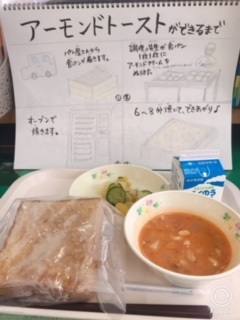 アーモンドトーストができるまで
パン屋さんから
食パンが届きます。
調理員さんが食パン
1枚1枚に
アーモンドクリームを
ぬります。
オーブンで
焼きます。
6〜8分焼いて、できあがり♪